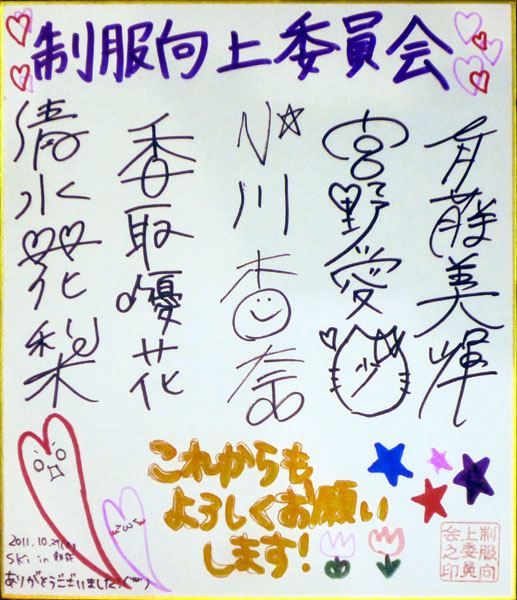 制服向上委員会
斉藤美輝
宮野愛紗
小川杏奈
香取優花
清水花梨
これからも
よろしくお願い
します！
2011.10.29
SKi in
ありがとうございました
制服向
上委員
会之印